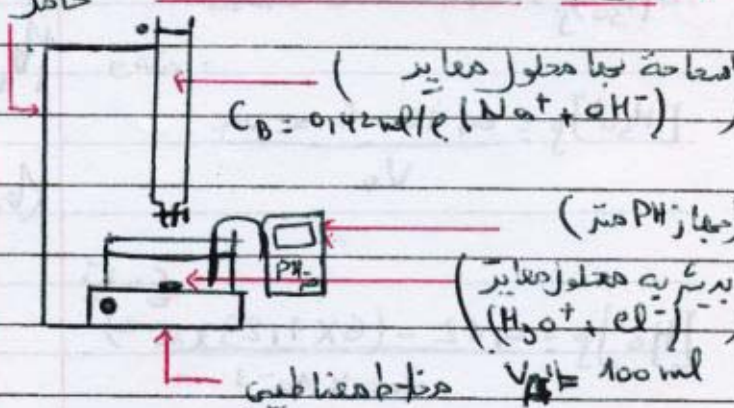 حامل
(سحاحة بها محلول معاير
C_B = 0,42 mol/l (Na⁺ + OH⁻)
(جهاز PH متر)
PH-
بيشر به محلول معاير
(H₃O⁺ + Cl⁻)
V = 100 ml
مخلاط مغناطيسي